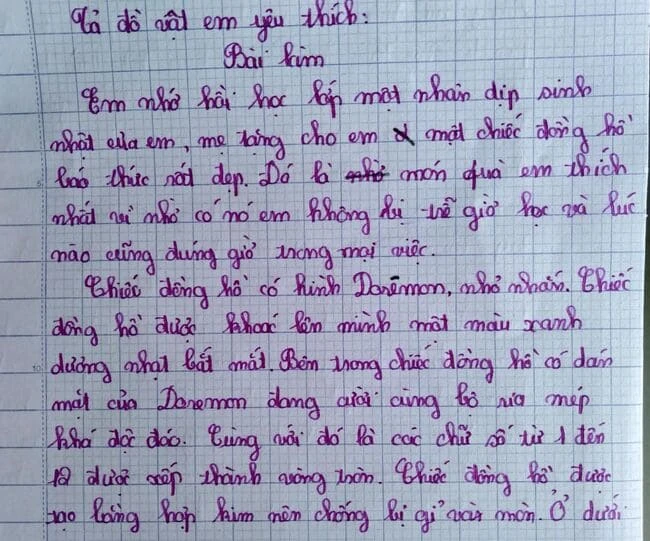 Tả đồ vật em yêu thích:
Bài làm
Em nhớ hồi học lớp một nhân dịp sinh
nhật của em, mẹ tăng cho em một chiếc đồng hồ
báo thức rất đẹp. Đó là món quà em thích
nhất vì nhờ có nó em không bị trễ giờ học và lúc
nào cũng đúng giờ trong mọi việc.
Chiếc đồng hồ có hình Doremon, nhỏ nhắn. Chiếc
đồng hồ được khoác lên mình một màu xanh
dương nhạt bắt mắt. Bên trong chiếc đồng hồ có dán
mặt của Doremon đang cười cùng bộ ria mép
khá độc đáo. Cùng với đó là các chữ số từ 1 đến
12 được xếp thành vòng tròn. Chiếc đồng hồ được
tạo bằng hợp kim nên chống bị gỉ và mòn. Ở dưới